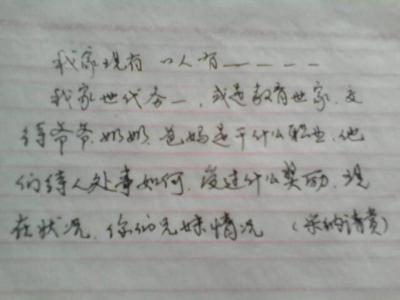 我家现有 n人有—————
我家世代务一，或是教育世家，交
待爷爷、奶奶、爸妈是干什么职业，他
们待人处事如何，受过什么奖励，现
在状况，你们兄妹情况（采纳请赏）